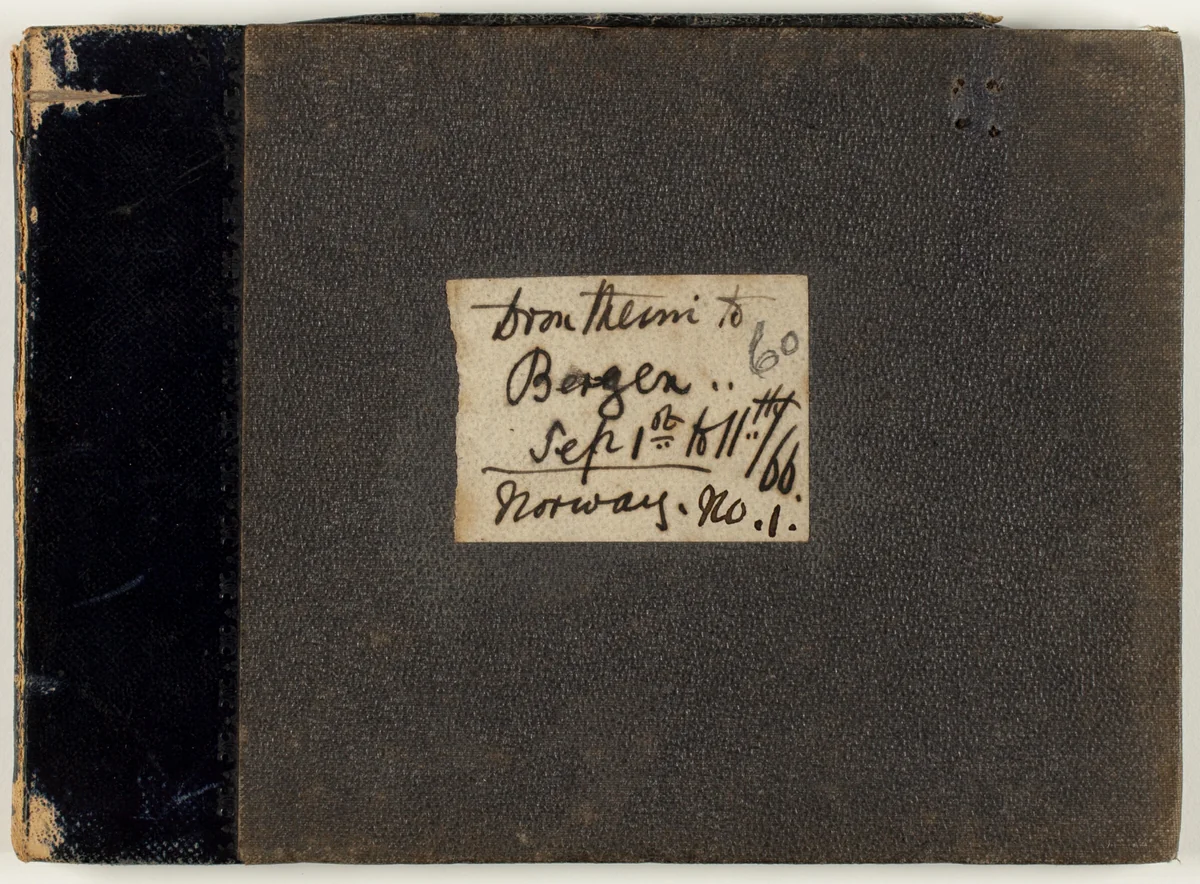 Drontheim to
60
Bergen ..
Sep 1st to 11th/66.
Norway. No. 1.